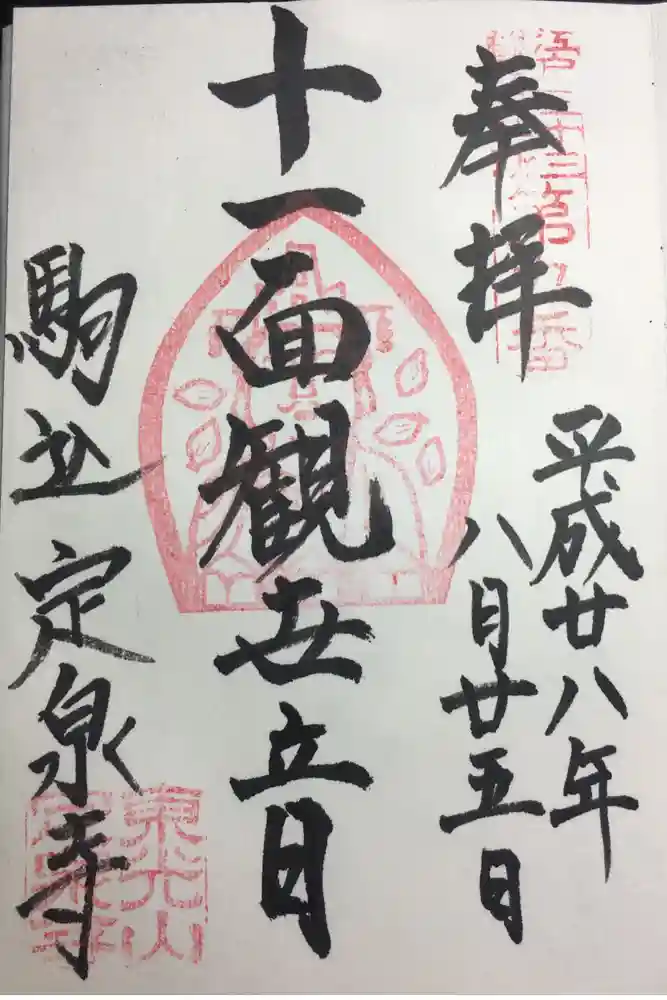 奉拝
平成廿八年
八月廿五日
十一面観世音
駒込定泉寺
東光山
定泉寺